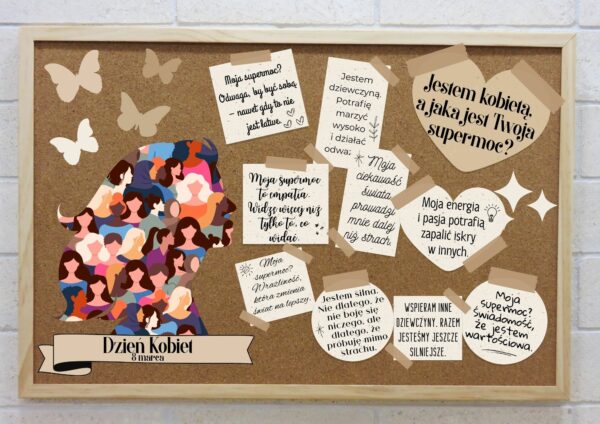 Jestem kobietą,
a jaka jest Twoja
supermoc?
Moja supermoc?
Odwaga, by być sobą
– nawet gdy to nie
jest łatwe.
Jestem
dziewczyną.
Potrafię
marzyć
wysoko
i działać
odważ
Moja supermoc
to empatia.
Widzę więcej niż
tylko to, co
widać.
Moja
ciekawość
świata
prowadzi
mnie dalej
niż strach.
Moja energia
i pasja potrafią
zapalić iskry
w innych.
Moja
supermoc?
Wrażliwość,
która zmienia
świat na lepszy.
Jestem silna.
Nie dlatego, że
nie boję się
niczego, ale
dlatego, że
próbuję mimo
strachu.
WSPIERAM INNE
DZIEWCZYNY. RAZEM
JESTEŚMY JESZCZE
SILNIEJSZE.
Moja
supermoc?
Świadomość,
że jestem
wartościowa.
Dzień Kobiet
8 marca